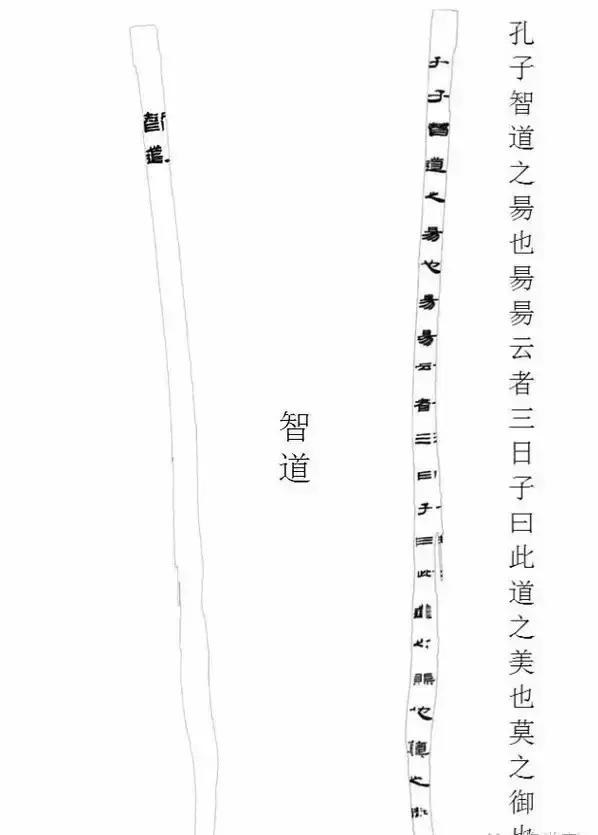 孔子智道之昜也昜昜云者三日子曰此道之美也莫之御也
孔子智道之昜也昜昜云者三日子曰此道之美也莫之御
智道
智道